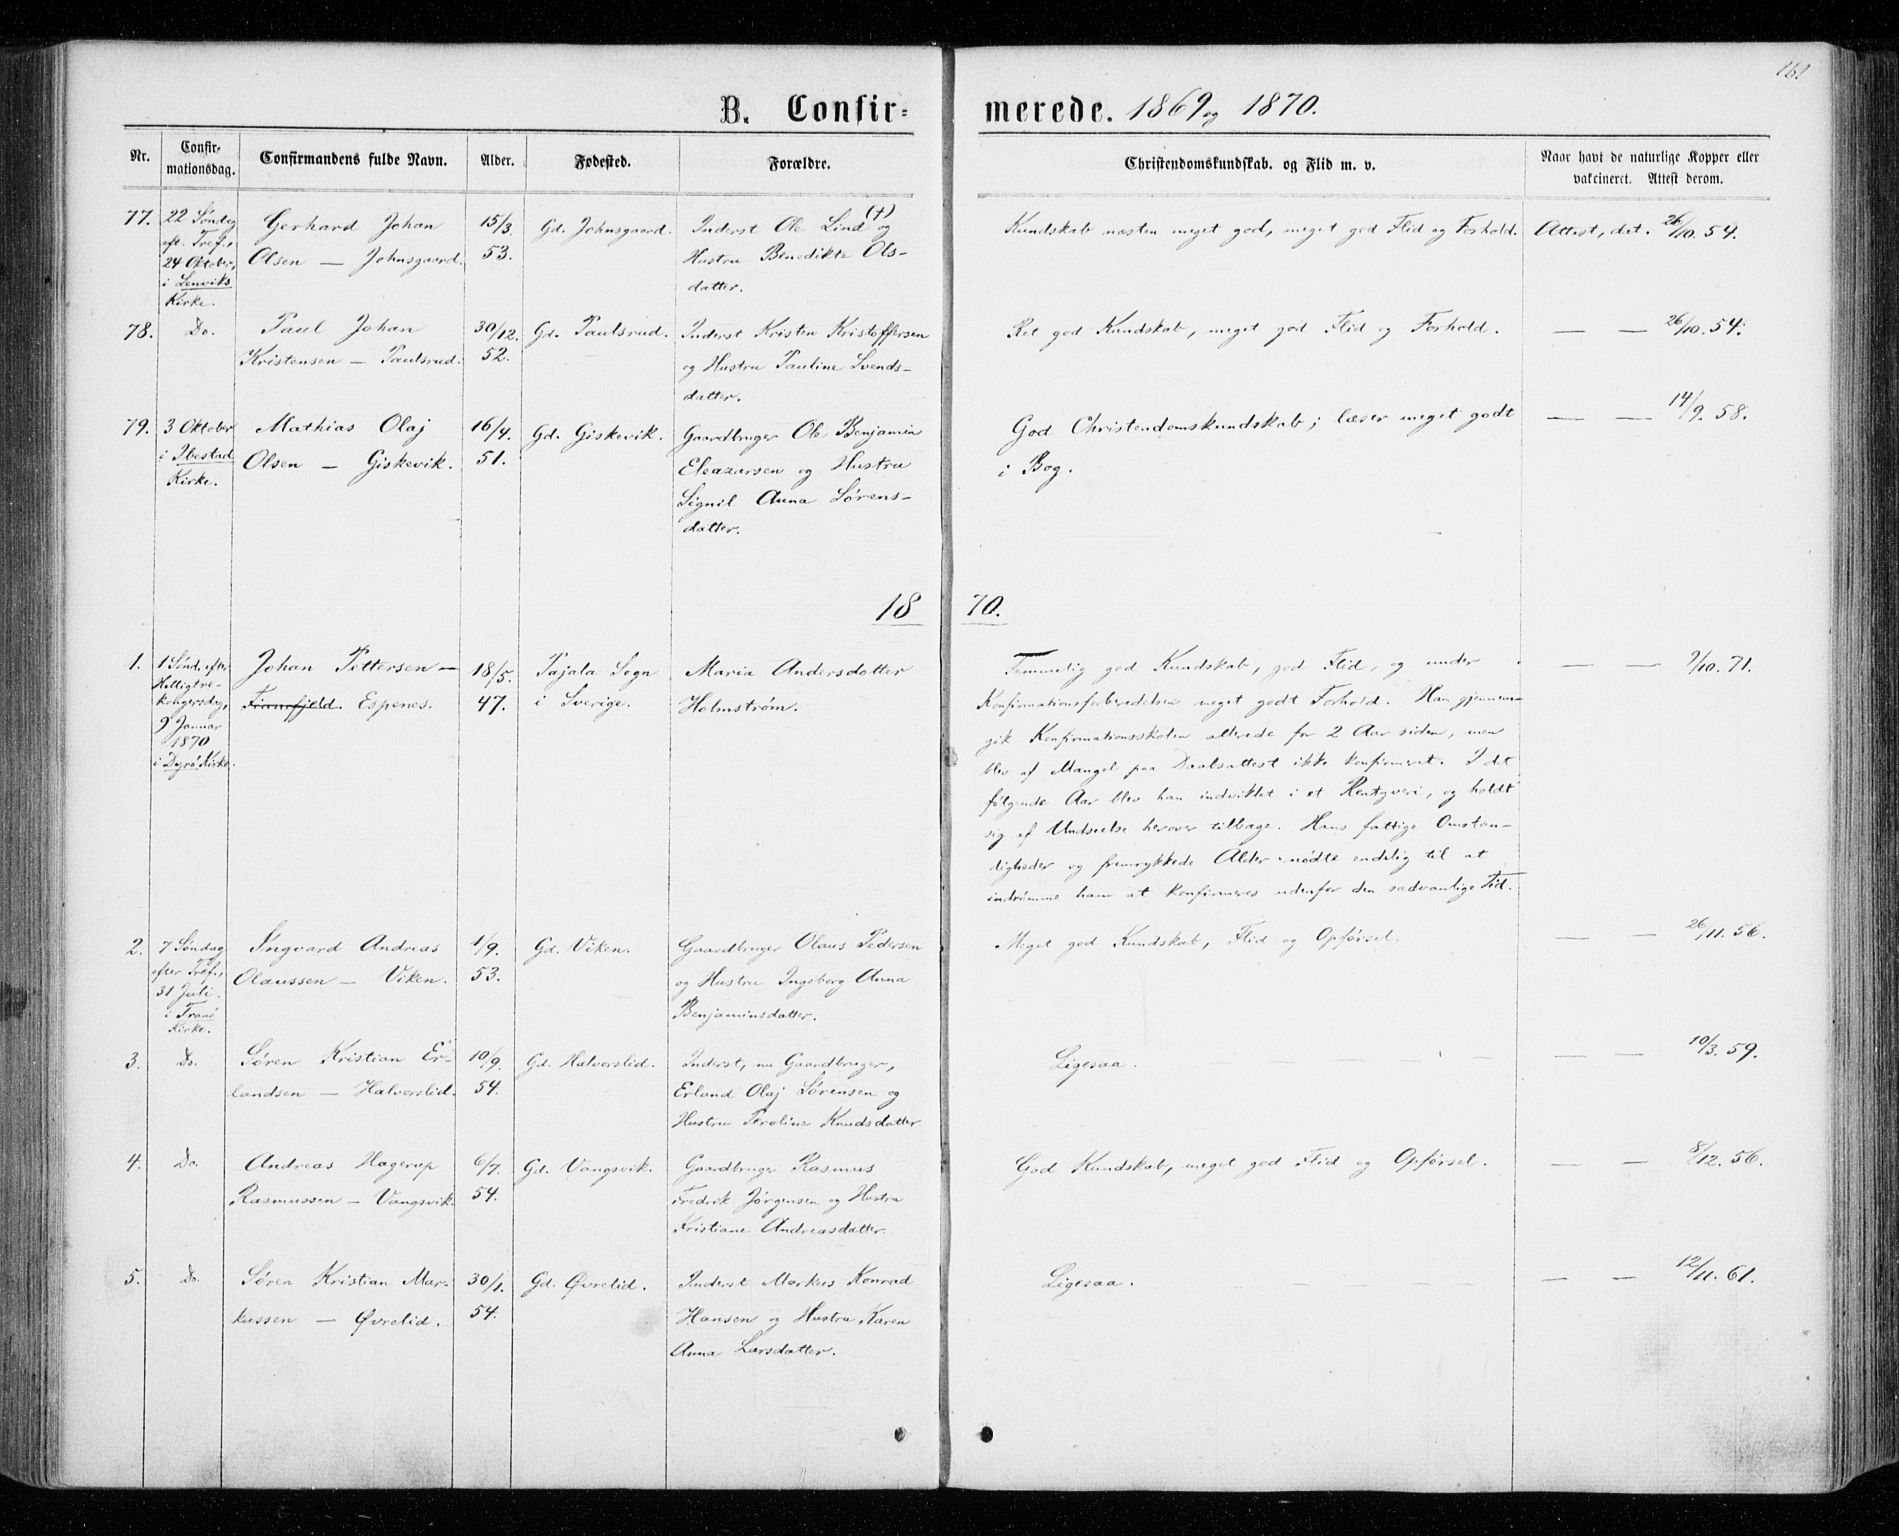 161
B. Confir-
merede. 1869 og 1870.
Nr.
Confir-
mationsdag.
Confirmandens fulde Navn.
Alder.
Fødested.
Forældre.
Christendomskundskab. og Flid m. v.
Naar havt de naturlige Kopper eller
vakcineret. Attest derom.
77.
22 Søndag
eft. Tref.,
24 Oktober,
i Lenviks
Kirke.
Gerhard Johan
Olsen — Johnsgaard.
15/3.
53.
Gd. Johnsgaard.
Inderst Ole Lind (†) og
Hustru Benedikte Ols-
datter.
Kundskab næsten meget god, meget god Flid og Forhold.
Attest, dat. 26/10. 54.
78.
Do.
Paul Johan
Kristensen — Paulsrud.
30/12.
52.
Gd. Paulsrud.
Inderst Kristen Kristoffersen
og Hustru Pauline Svends-
datter.
Ret god Kundskab, meget god Flid og Forhold.
— — 26/10. 54.
79.
3 Oktober
i Ibestad
Kirke.
Mathias Olaj
Olsen — Giskevik.
16/4.
51.
Gd. Giskevik.
Gaardbruger Ole Benjamin
Eleazarsen og Hustru
Signil Anna Sørens-
datter.
God Christendomskundskab; læser meget godt
i Bog.
— — 14/9. 58.
18 70.
1.
1 Sønd. efter
Helligtre-
kongersdag,
9 Januar
1870
i Dyrø Kirke.
Johan Pettersen —
Finnefjeld. Espenes.
18/5.
47.
Pajala Sogn
i Sverige.
Maria Andersdotter
Holmstrøm.
Temmelig god Kundskab, god Flid, og under
Konfirmationsforberedelsen meget godt Forhold. Han gjennem-
gik Konfirmationsskolen allerede for 2 Aar siden, men
blev af Mangel paa Daabsattest ikke konfirmeret. I det
følgende Aar blev han indviklet i et Rentyveri, og holdt
sig af Undseelse herover tilbage. Hans fattige Omstæn-
digheder og fremrykkede Alder nødte endelig til at
indrømme ham at konfirmeres udenfor den sædvanlige Tid.
— — /10. 71.
2.
7 Søndag
efter Tref.,
31 Juli
i Tranø
Kirke.
Ingvard Andreas
Olaussen — Viken.
1/9.
53.
Gd. Viken.
Gaardbruger Olaus Pedersen
og Hustru Ingeborg Anna
Benjaminsdatter.
Meget god Kundskab, Flid og Opførsel.
— — 26/11. 56.
3.
Do.
Søren Kristian Er-
landsen — Halvorslid.
10/9.
54.
Gd. Halvorslid.
Inderst, nu Gaardbruger,
Erland Olaj Sørensen og
Hustru Peroline Knudsdatter
Ligesaa.
— — 10/3. 59.
4.
Do.
Andreas Hagerup
Rasmussen — Vangsvik.
6/7.
54.
Gd. Vangsvik.
Gaardbruger Rasmus
Fredrik Jørgensen og Hustru
Kristiane Andreasdatter.
God Kundskab, meget god Flid og Opførsel.
— — 8/12. 56.
5.
Do.
Søren Kristian Mar-
kussen — Øvrelid.
30/1.
54.
Gd. Øvrelid.
Inderst Markus Konrad
Hansen og Hustru Karen
Anna Larsdatter.
Ligesaa.
— — 12/11. 61.